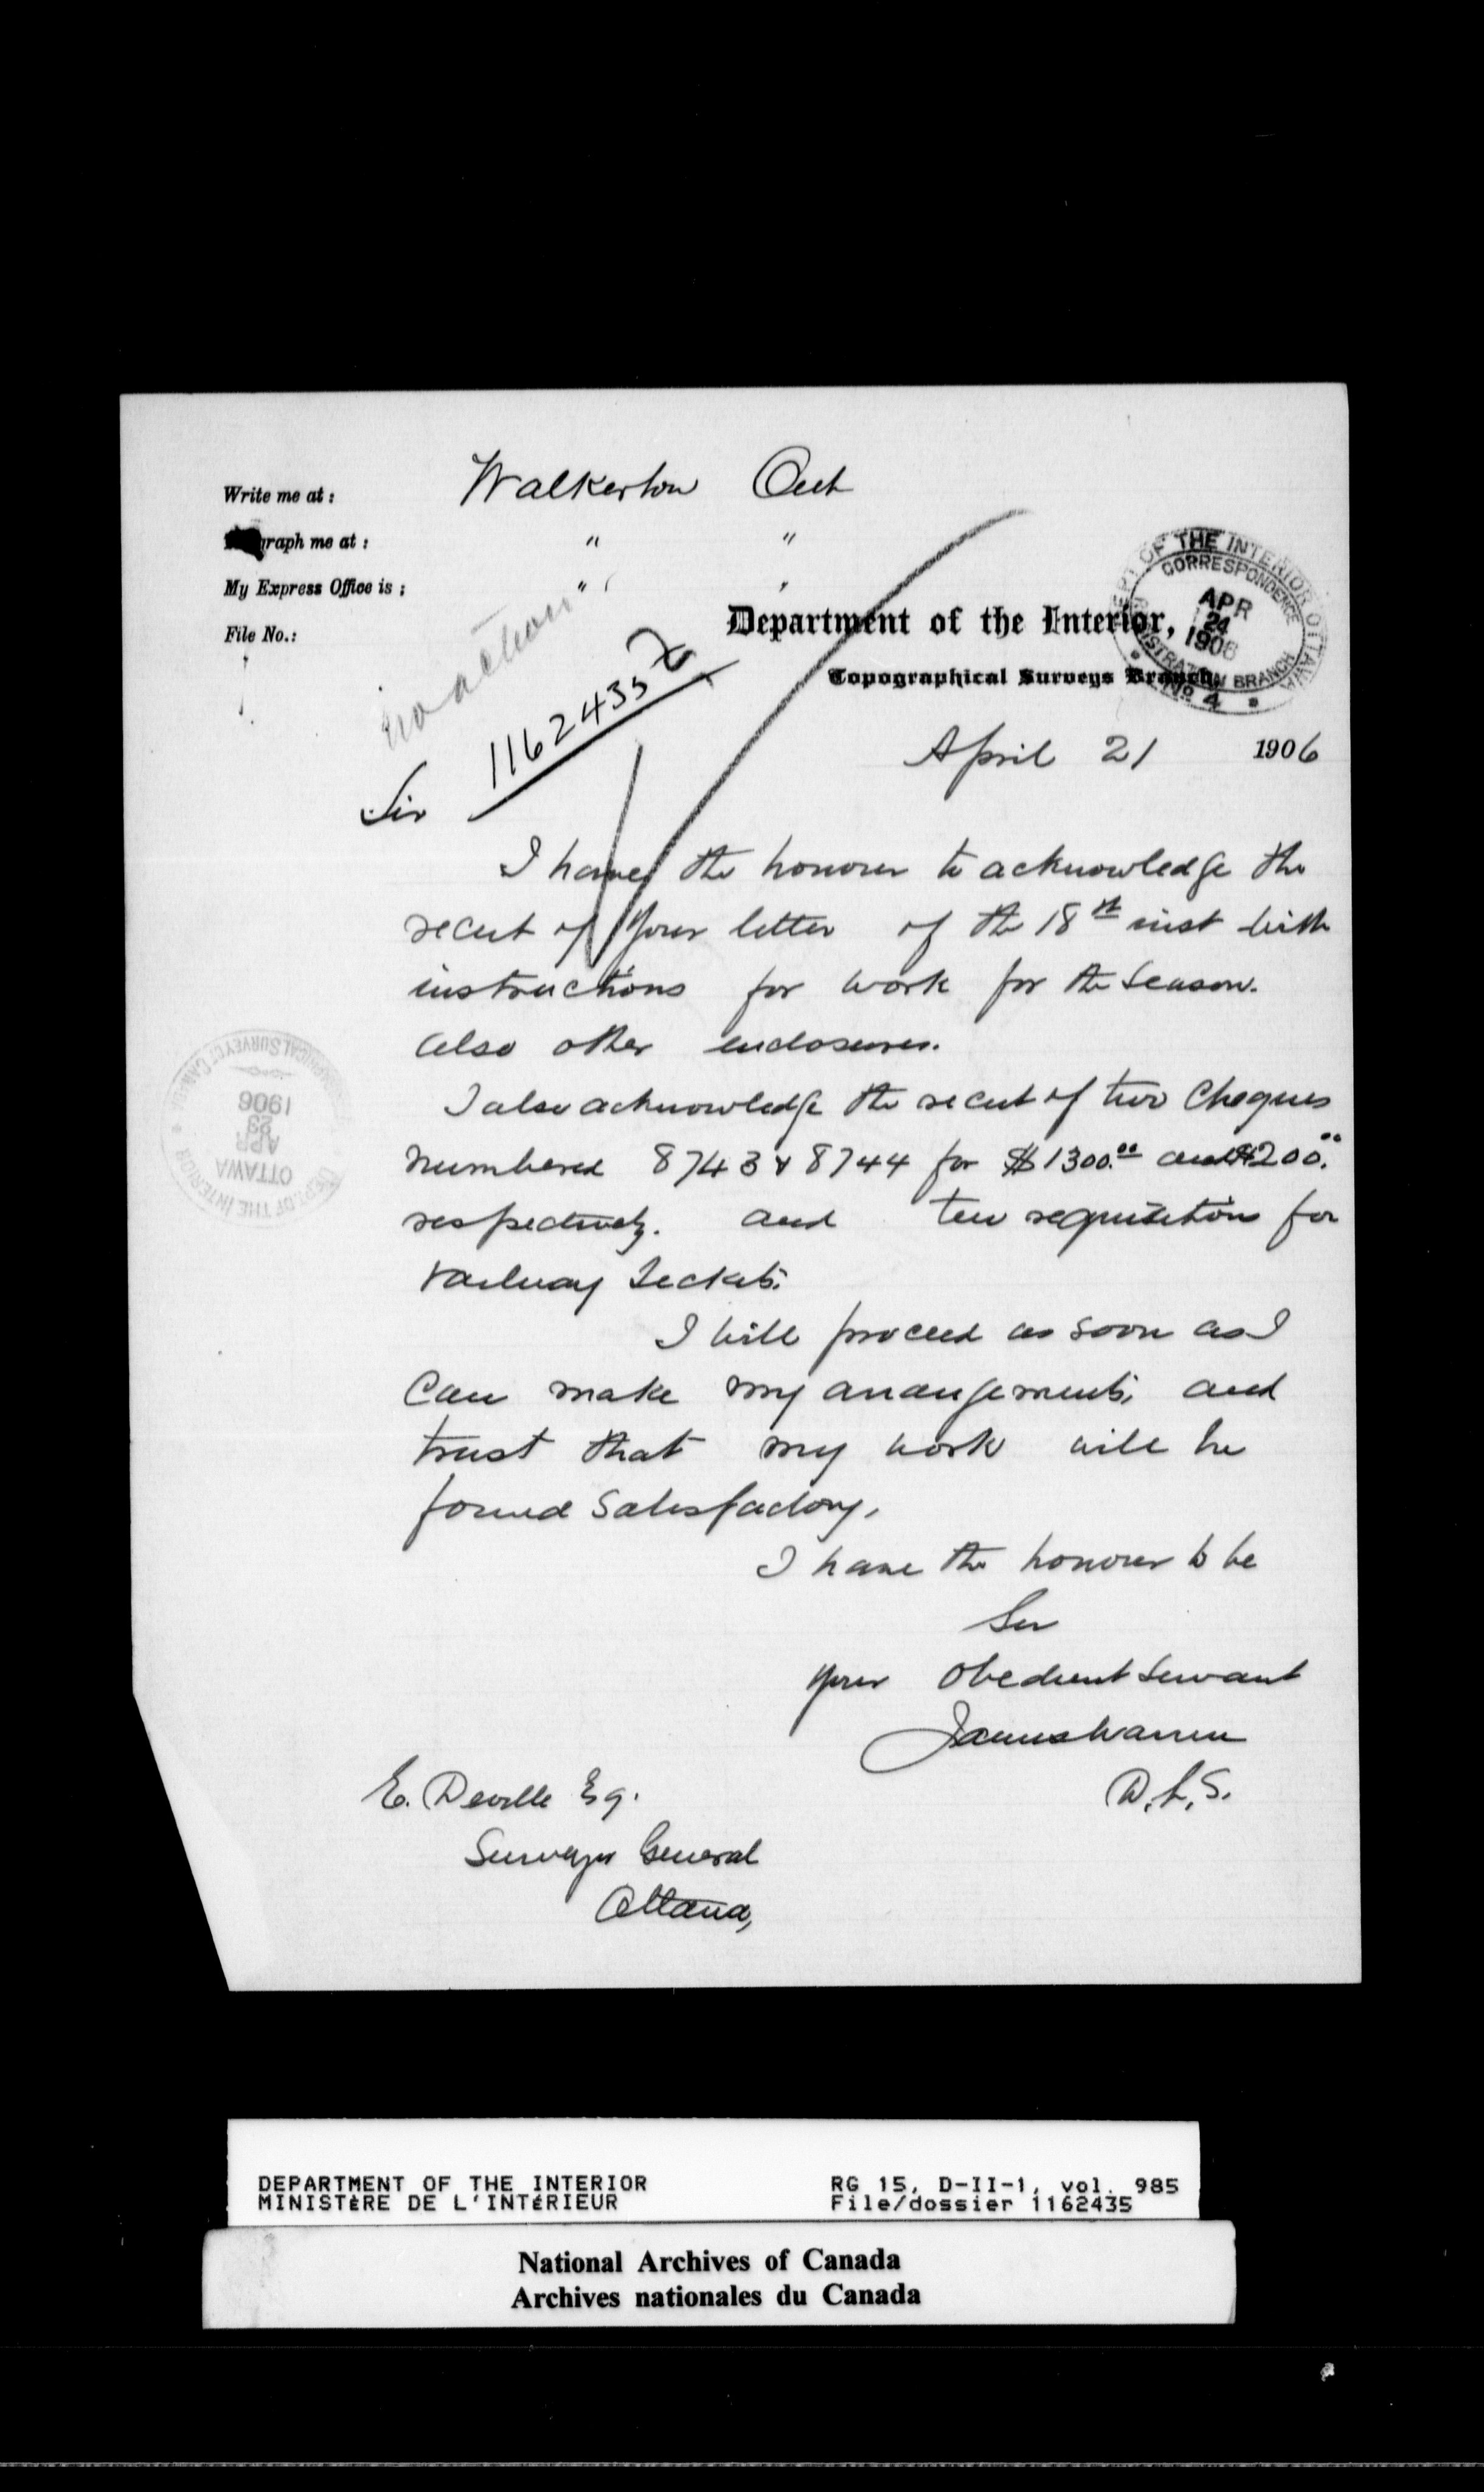 Write me at : Walkerton Ont
graph me at : " "
My Express Office is ; " "
File No.:
no action
1162435
Department of the Interior,
Topographical Surveys Branch,
DEPT OF THE INTERIOR OTTAWA
CORRESPONDENCE
APR
24
1906
BRANCH
No 4
April 21 1906
Sir
I have the honour to acknowledge the
receut of your letter of the 18th inst with
instructions for work for the Season.
also other enclosures.
I also acknowledge the receut of two Cheques
numbered 8743 & 8744 for $1300.00 and $200.00
respectively. and ten requisitions for
railway Tickets.
I will proceed as soon as I
Can make my arrangements, and
trust that my work will be
found Satisfactory,
I have the honour to be
Sir
your Obedient Servant
James Warren
D.L.S.
E. Deville Esq.
Surveyor General
Ottawa,
1906
23
APR
OTTAWA
DEPT. OF THE INTERIOR
DEPARTMENT OF THE INTERIOR RG 15, D-II-1, vol. 985
MINISTÈRE DE L'INTÉRIEUR File/dossier 1162435
National Archives of Canada
Archives nationales du Canada